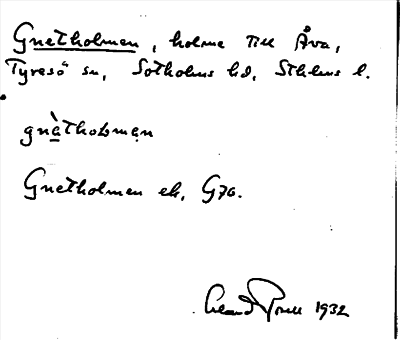 Gnetholmen, holme till Åva,
Tyresö sn, Sotholms hd, Sthlms l.
gnàthoɫmən
Gnetholmen ek, G7a.
1932